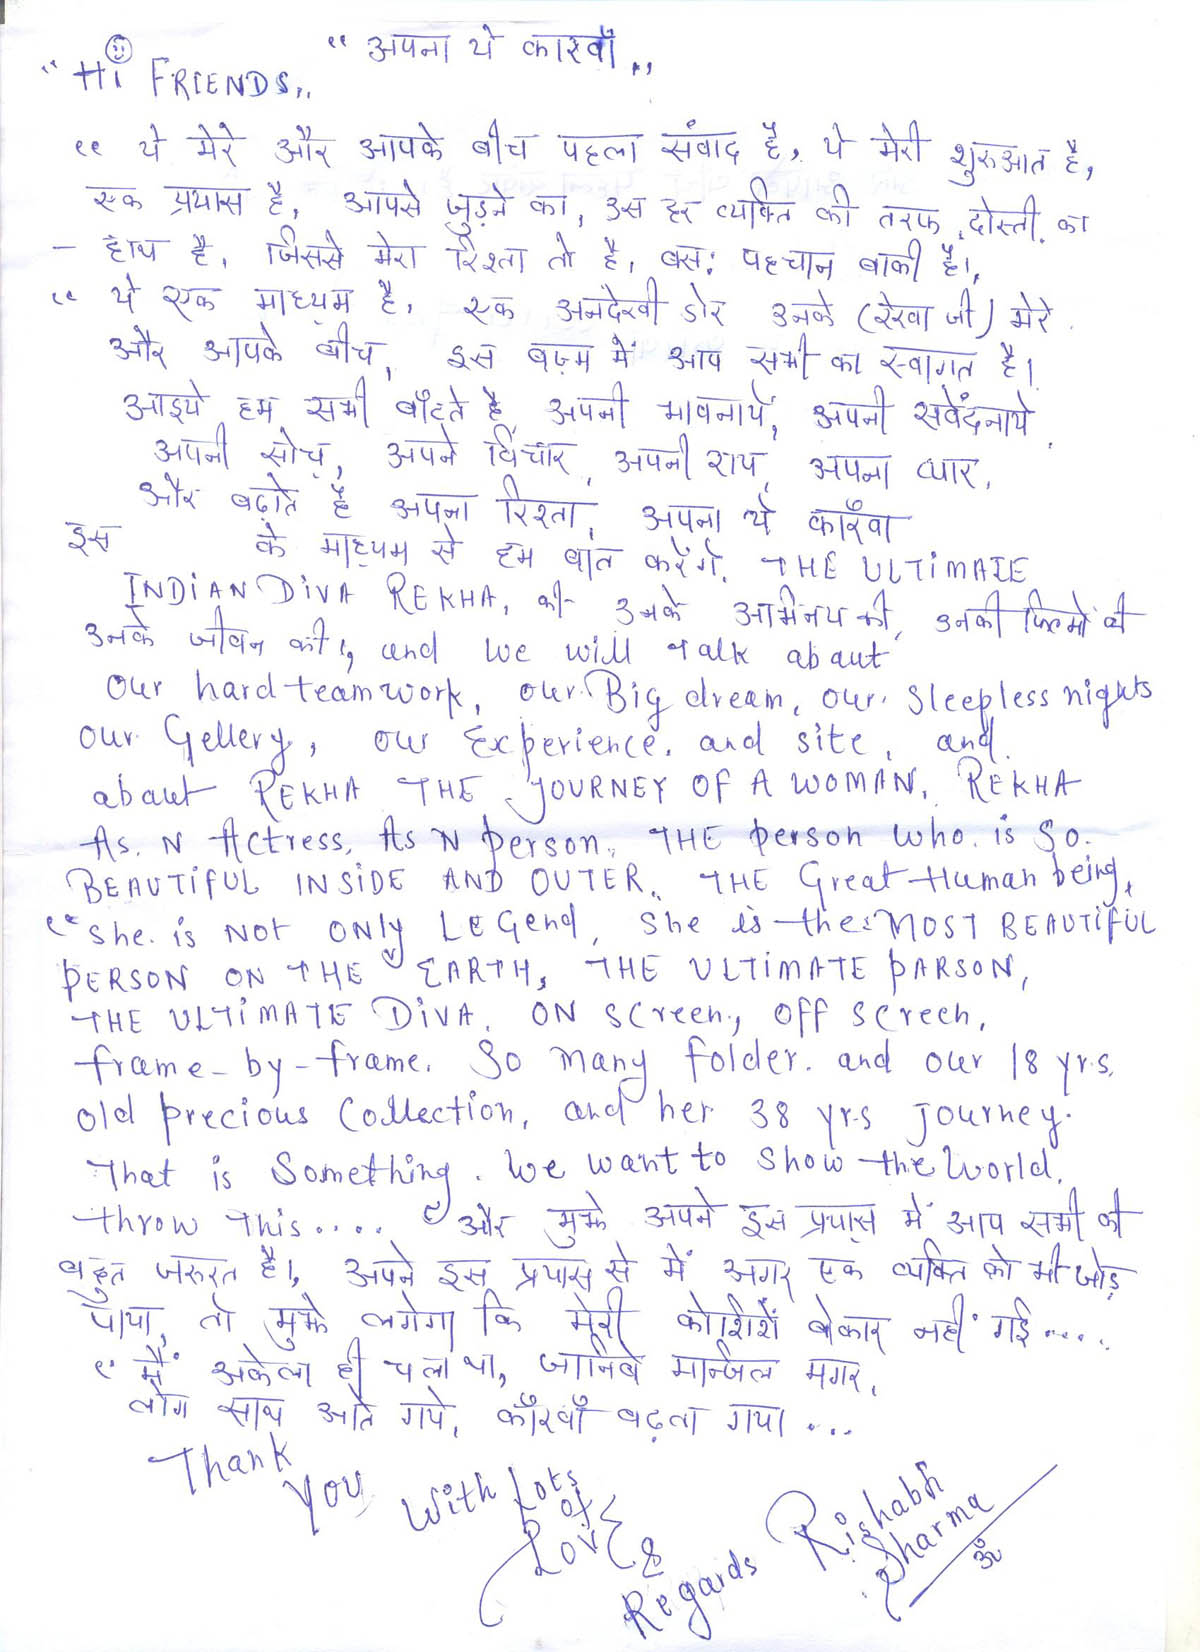 “ अपना ये कारवाँ ,,
“ Hi FRIENDS,,
“ ये मेरे और आपके बीच पहला संवाद है, ये मेरी शुरुआत है,
एक प्रयास है, आपसे जुड़ने का, उस हर व्यक्ति की तरफ दोस्ती का
- हाथ है, जिससे मेरा रिश्ता तो है, बस: पहचान बाकी है।,
“ ये एक माध्यम है, एक अनदेखी डोर उनके (रेखा जी) मेरे
और आपके बीच, इस बज़्म में आप सभी का स्वागत है।
आइये हम सभी बाँटते है, अपनी भावनायें, अपनी सवेंदनाये,
अपनी सोच, अपने विचार, अपनी राय, अपना प्यार,
और बढ़ाते है अपना रिश्ता, अपना ये काँरवा
इस के माध्यम से हम बात करेंगे, THE ULTIMATE
INDIAN DIVA REKHA, की उनके अभिनय की, उनकी फिल्मों की
उनके जीवन की।, and we will talk abaut
our hard teamwork, our Big dream, our sleepless nights
our Gellery, our Experience, and site, and
abaut REKHA THE JOURNEY OF A WOMAN, REKHA
As. N Actress, As N person, THE person who is so
BEAUTIFUL INSIDE AND OUTER, THE Great Human being,
“ she is NOT ONLY LEGend, she is the MOST BEAUTIFUL
PERSON ON THE EARTH, THE ULTIMATE PARSON,
THE ULTIMATE DIVA, ON screen, off screen,
frame-by-frame. So many folder. and our 18 yrs.
old precious Collection, and her 38 yrs journey.
That is something. we want to show the World,
throw this.... “ और मुझे अपने इस प्रयास में आप सभी की
बहुत जरुरत है।, अपने इस प्रयास से में अगर एक व्यक्ति को भी जोड़
पाया, तो मुझे लगेगा कि मेरी कोशिशें बेकार नहीं गई .....
“ मैं अकेला ही चला था, जानिबे मन्जिल मगर,
लोग साथ आते गये, काँरवाँ बढ़ता गया ...
Thank you with lots of LOVE & Regards Rishabh Sharma
ॐ